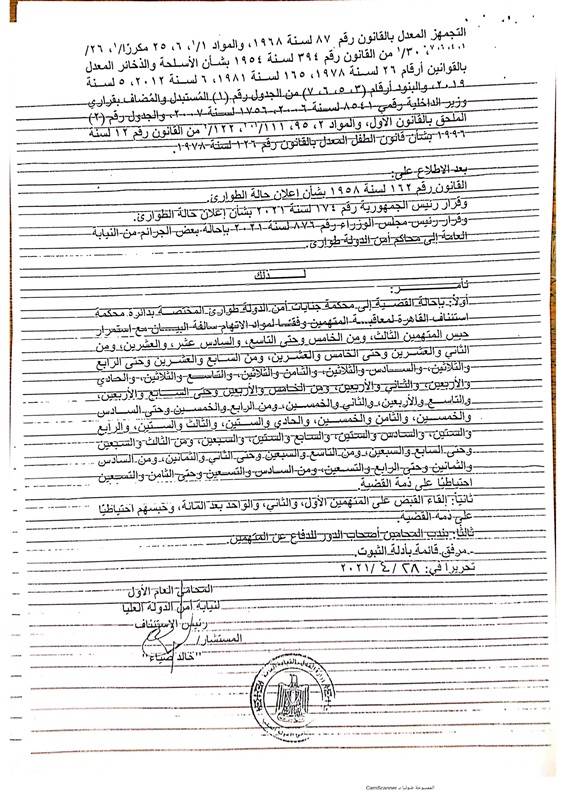 التجمهر المعدل بالقانون رقم ٨٧ لسنة ١٩٦٨، والمواد ١/١، ٦، ٢٥ مكررًا/١، ٢٦/
٣٠/١ من القانون رقم ٣٩٤ لسنة ١٩٥٤ بشأن الأسلحة والذخائر المعدل
بالقوانين أرقام ٢٦ لسنة ١٩٧٨، ١٦٥ لسنة ١٩٨١، ٦ لسنة ٢٠١٢، ٥ لسنة
٢٠١٩، والبنود أرقام (٣، ٥، ٦، ٧) من الجدول رقم (١) المُستبدل والمُضاف بقراري
وزير الداخلية رقمي ٨٥٤١ لسنة ٢٠٠٦، ١٧٥٦ لسنة ٢٠٠٧، والجدول رقم (٢)
الملحق بالقانون الأول، والمواد ٢، ٩٥، ١١١/١، ١٢٢/١ من القانون رقم ١٢ لسنة
١٩٩٦ بشأن قانون الطفل المعدل بالقانون رقم ١٢٦ لسنة
بعد الاطلاع على:
القانون رقم ١٦٢ لسنة ١٩٥٨ بشأن إعلان حالة الطوارئ.
وقرار رئيس الجمهورية رقم ١٧٤ لسنة ٢٠٢١ بشأن إعلان حالة الطوارئ.
وقرار رئيس مجلس الوزراء رقم ٨٧٦ لسنة ٢٠٢١ بإحالة بعض الجرائم من النيابة
العامة إلى محاكم أمن الدولة طوارئ.
لـــــذلك
نأمـــــر:
أولًا: بإحالة القضية إلى محكمة جنايات أمن الدولة طوارئ المختصة بدائرة محكمة
استئناف القاهرة لمعاقبة المتهمين وفقًا لمواد الاتهام سالفة البيان مع استمرار
حبس المتهمين الثالث، ومن الخامس وحتى التاسع، والسادس عشر، والعشرين، ومن
الثاني والعشرين وحتى الخامس والعشرين، ومن السابع والعشرين وحتى الرابع
والثلاثين، والسادس والثلاثين، والثامن والثلاثين، والتاسع والثلاثين، والحادي
والأربعين، والثاني والأربعين، ومن الخامس والأربعين وحتى السابع والأربعين،
والتاسع والأربعين، والثاني والخمسين، ومن الرابع والخمسين وحتى السادس
والخمسين، والثامن والخمسين، والحادي والستين، والثالث والستين، والرابع
والستين، والسادس والستين، والسابع والستين، والسبعين، ومن الثالث والسبعين
وحتى السابع والسبعين، ومن التاسع والسبعين وحتى الثاني والثمانين، ومن السادس
والثمانين وحتى الرابع والتسعين، ومن السادس والتسعين وحتى الثامن والتسعين
احتياطيًا على ذمة القضية.
ثانيًا: إلقاء القبض على المتهمين الأول، والثاني، والواحد بعد المائة، وحبسهم احتياطيًا
على ذمة القضية.
ثالثًا: بندب المحامين أصحاب الدور للدفاع عن المتهمين.
مرفق قائمة بأدلة الثبوت.
تحريرا في: ٢٨/ ٤/ ٢٠٢١
المحامي العام الأول
لنيابة أمن الدولة العليا
رئيس الاستئناف
المستشار/
"خالد ضياء"
الممسوحة ضوئيا بـ CamScanner